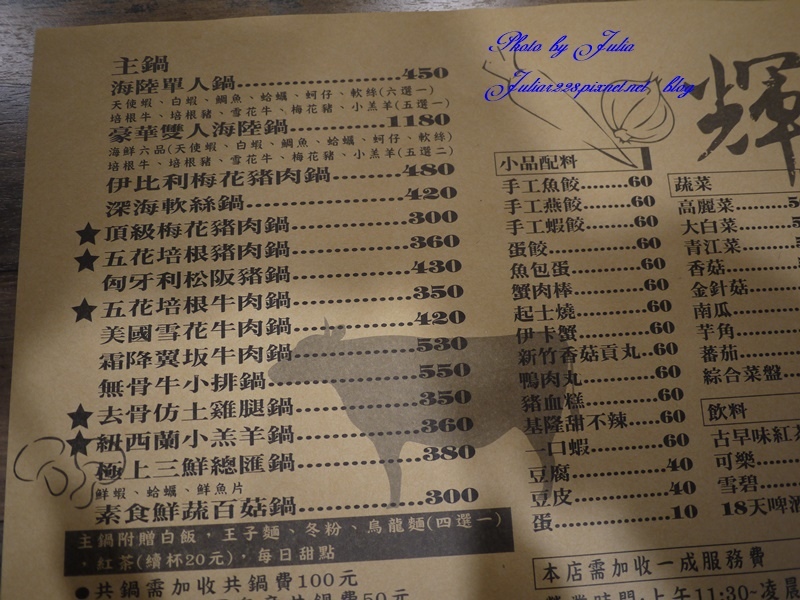 Photo by Julia
Juliar228pixnet.net blog
主鍋
海陸單人鍋.....................450
天使蝦、白蝦、鯛魚、蛤蠣、蚵仔、軟絲(六選一)
培根牛、培根豬、雪花牛、梅花豬、小羔羊(五選一)
豪華雙人海陸鍋...............1180
海鮮六品(天使蝦、白蝦、鯛魚、蛤蠣、蚵仔、軟絲)
培根牛、培根豬、雪花牛、梅花豬、小羔羊(五選二)
伊比利梅花豬肉鍋............480
深海軟絲鍋.....................420
★頂級梅花豬肉鍋...............300
★五花培根豬肉鍋...............360
匈牙利松阪豬鍋...............430
★五花培根牛肉鍋...............350
美國雪花牛肉鍋...............420
霜降翼坂牛肉鍋...............530
無骨牛小排鍋..................550
★去骨仿土雞腿鍋...............350
★紐西蘭小羔羊鍋...............360
極上三鮮總匯鍋...............380
鮮蝦、蛤蠣、鮮魚片
素食鮮蔬百菇鍋...............300
主鍋附贈白飯,王子麵、冬粉、烏龍麵(四選一)
,紅茶(續杯20元),每日甜點
●共鍋需加收共鍋費100元
輝
小品配料
手工魚餃........60
手工燕餃........60
手工蝦餃........60
蛋餃...............60
魚包蛋............60
蟹肉棒............60
起士燒............60
伊卡蟹............60
新竹香菇貢丸..60
鴨肉丸............60
豬血糕............60
基隆甜不辣.....60
一口蝦............60
豆腐...............40
豆皮...............40
蛋..................10
蔬菜
高麗菜
大白菜
青江菜
香菇
金針菇
南瓜
芋角
蕃茄
綜合菜盤
飲料
古早味紅茶
可樂
雪碧
18天啤酒
本店需加收一成服務費
營業時間:上午11:30~凌晨